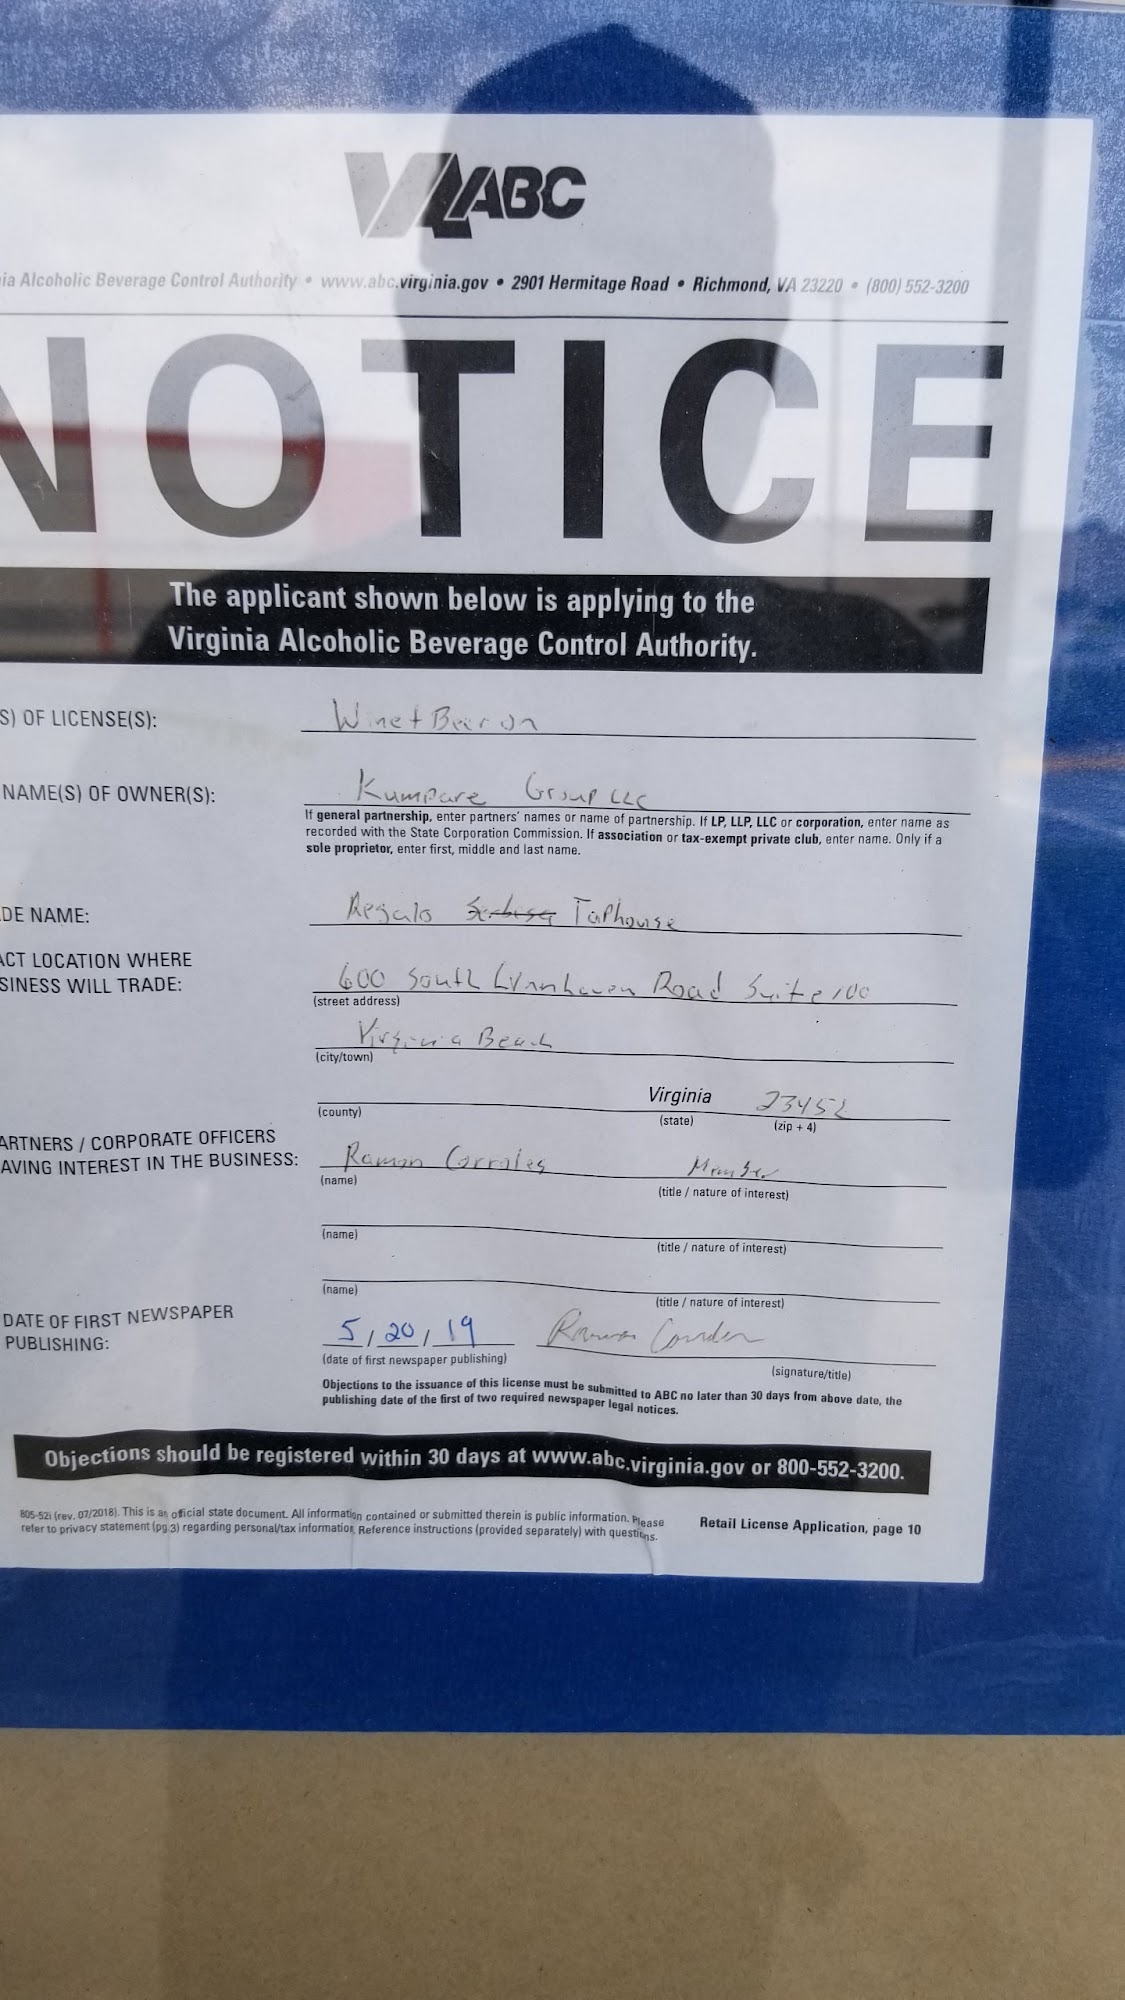 VA ABC
ia Alcoholic Beverage Control Authority • www.abc.virginia.gov • 2901 Hermitage Road • Richmond, VA 23220 • (800) 552-3200
NOTICE
The applicant shown below is applying to the
Virginia Alcoholic Beverage Control Authority.
S) OF LICENSE(S): Wine + Beer on
NAME(S) OF OWNER(S): Kumpare Group LLC
If general partnership, enter partners' names or name of partnership. If LP, LLP, LLC or corporation, enter name as
recorded with the State Corporation Commission. If association or tax-exempt private club, enter name. Only if a
sole proprietor, enter first, middle and last name.
DE NAME: Regalo Taphouse
ACT LOCATION WHERE
SINESS WILL TRADE: 600 South Lynnhaven Road Suite 100
(street address)
Virginia Beach
(city/town)
Virginia 23452
(county) (state) (zip + 4)
ARTNERS / CORPORATE OFFICERS
AVING INTEREST IN THE BUSINESS: Ramon Corrales Member
(name) (title / nature of interest)
(name) (title / nature of interest)
(name) (title / nature of interest)
DATE OF FIRST NEWSPAPER
PUBLISHING: 5 / 20 / 19
(date of first newspaper publishing) (signature/title)
Objections to the issuance of this license must be submitted to ABC no later than 30 days from above date, the
publishing date of the first of two required newspaper legal notices.
Objections should be registered within 30 days at www.abc.virginia.gov or 800-552-3200.
805-52i (rev. 07/2018). This is an official state document. All information contained or submitted therein is public information. Please
refer to privacy statement (pg 3) regarding personal/tax information. Reference instructions (provided separately) with questions.
Retail License Application, page 10